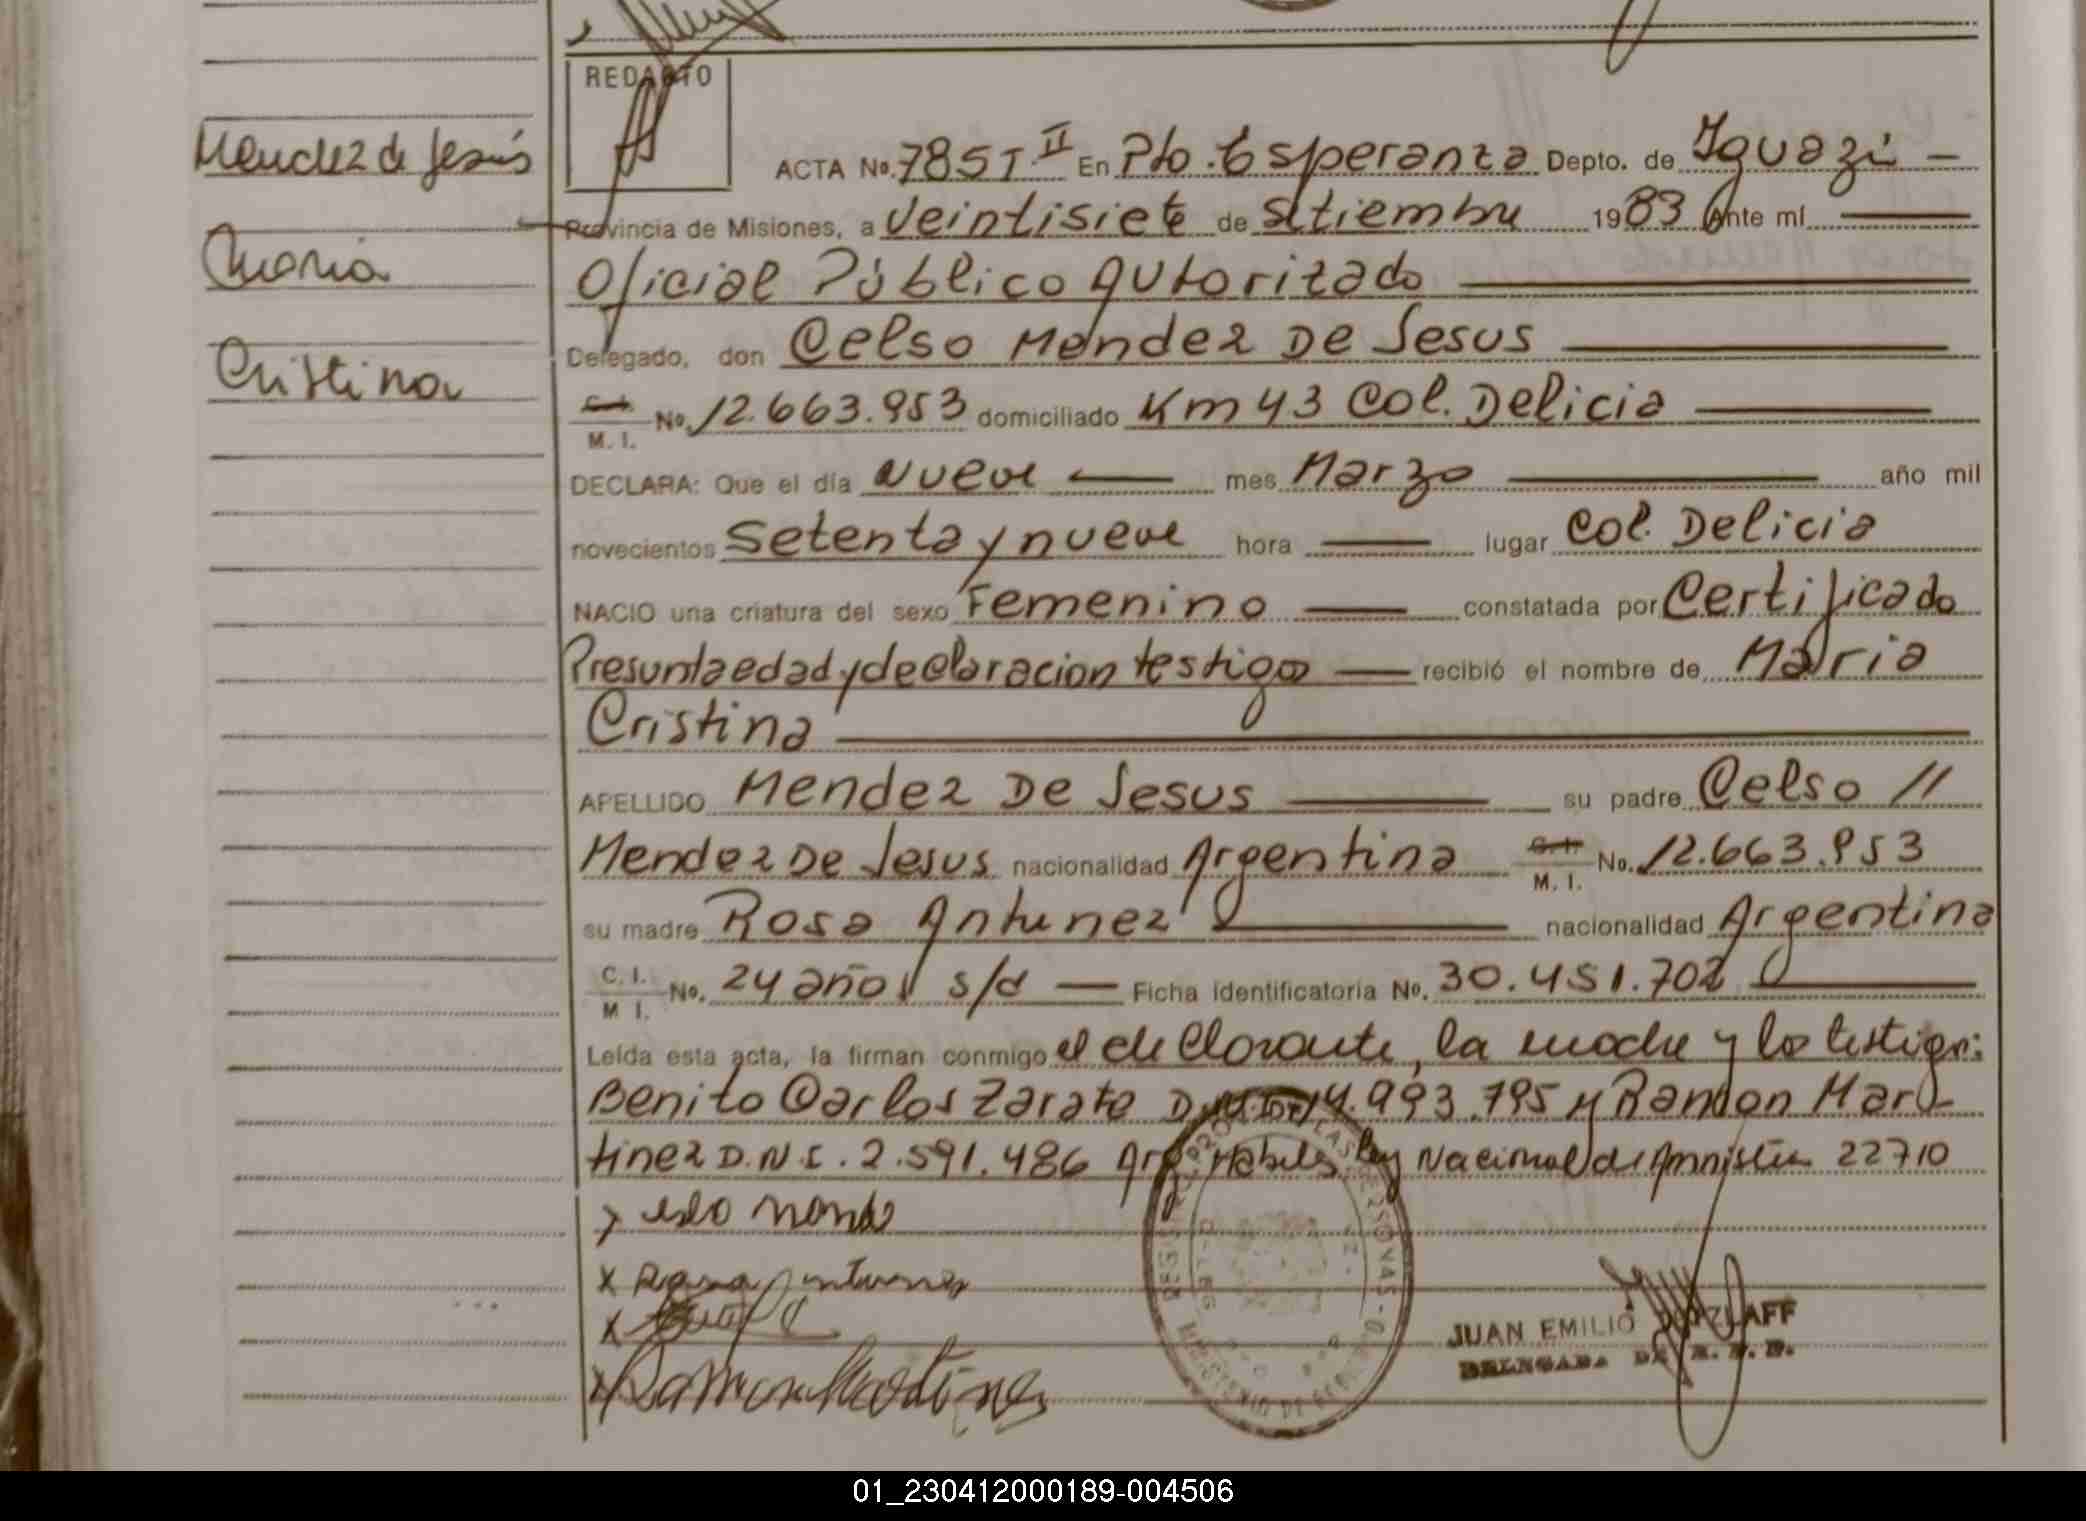 REDACTO
Mendez de Jesús
Maria
Cristina
ACTA No. 785 T. II En Pto. Esperanza Depto. de Iguazú —
Provincia de Misiones, a veintisiete de Setiembre 1983 Ante mí
Oficial Público Autorizado
Delegado, don Celso Mendez De Jesus
C.I. M. I. No. 12.663.953 domiciliado Km 43 Col. Delicia
DECLARA: Que el día nueve mes Marzo año mil
novecientos Setenta y nueve hora — lugar Col. Delicia
NACIO una criatura del sexo Femenino constatada por Certificado
Presunta edad y declaracion testigos recibió el nombre de Maria
Cristina
APELLIDO Mendez De Jesus su padre Celso //
Mendez De Jesus nacionalidad Argentina C.I. M. I. No. 12.663.953
su madre Rosa Antunez nacionalidad Argentina
C. I. M I. No. 24 años s/d — Ficha identificatoria No. 30.451.702
Leída esta acta, la firman conmigo el declarante, la madre y los testigos:
Benito Carlos Zarate 14.993.795 y Ramon Mar-
tinez D.N.I. 2.591.486 Arg. Habiles Ley Nacional de Amnistia 22710
Rosa Antunez
Ramon Martinez
JUAN EMILIO
DELEGADA
01_230412000189-004506